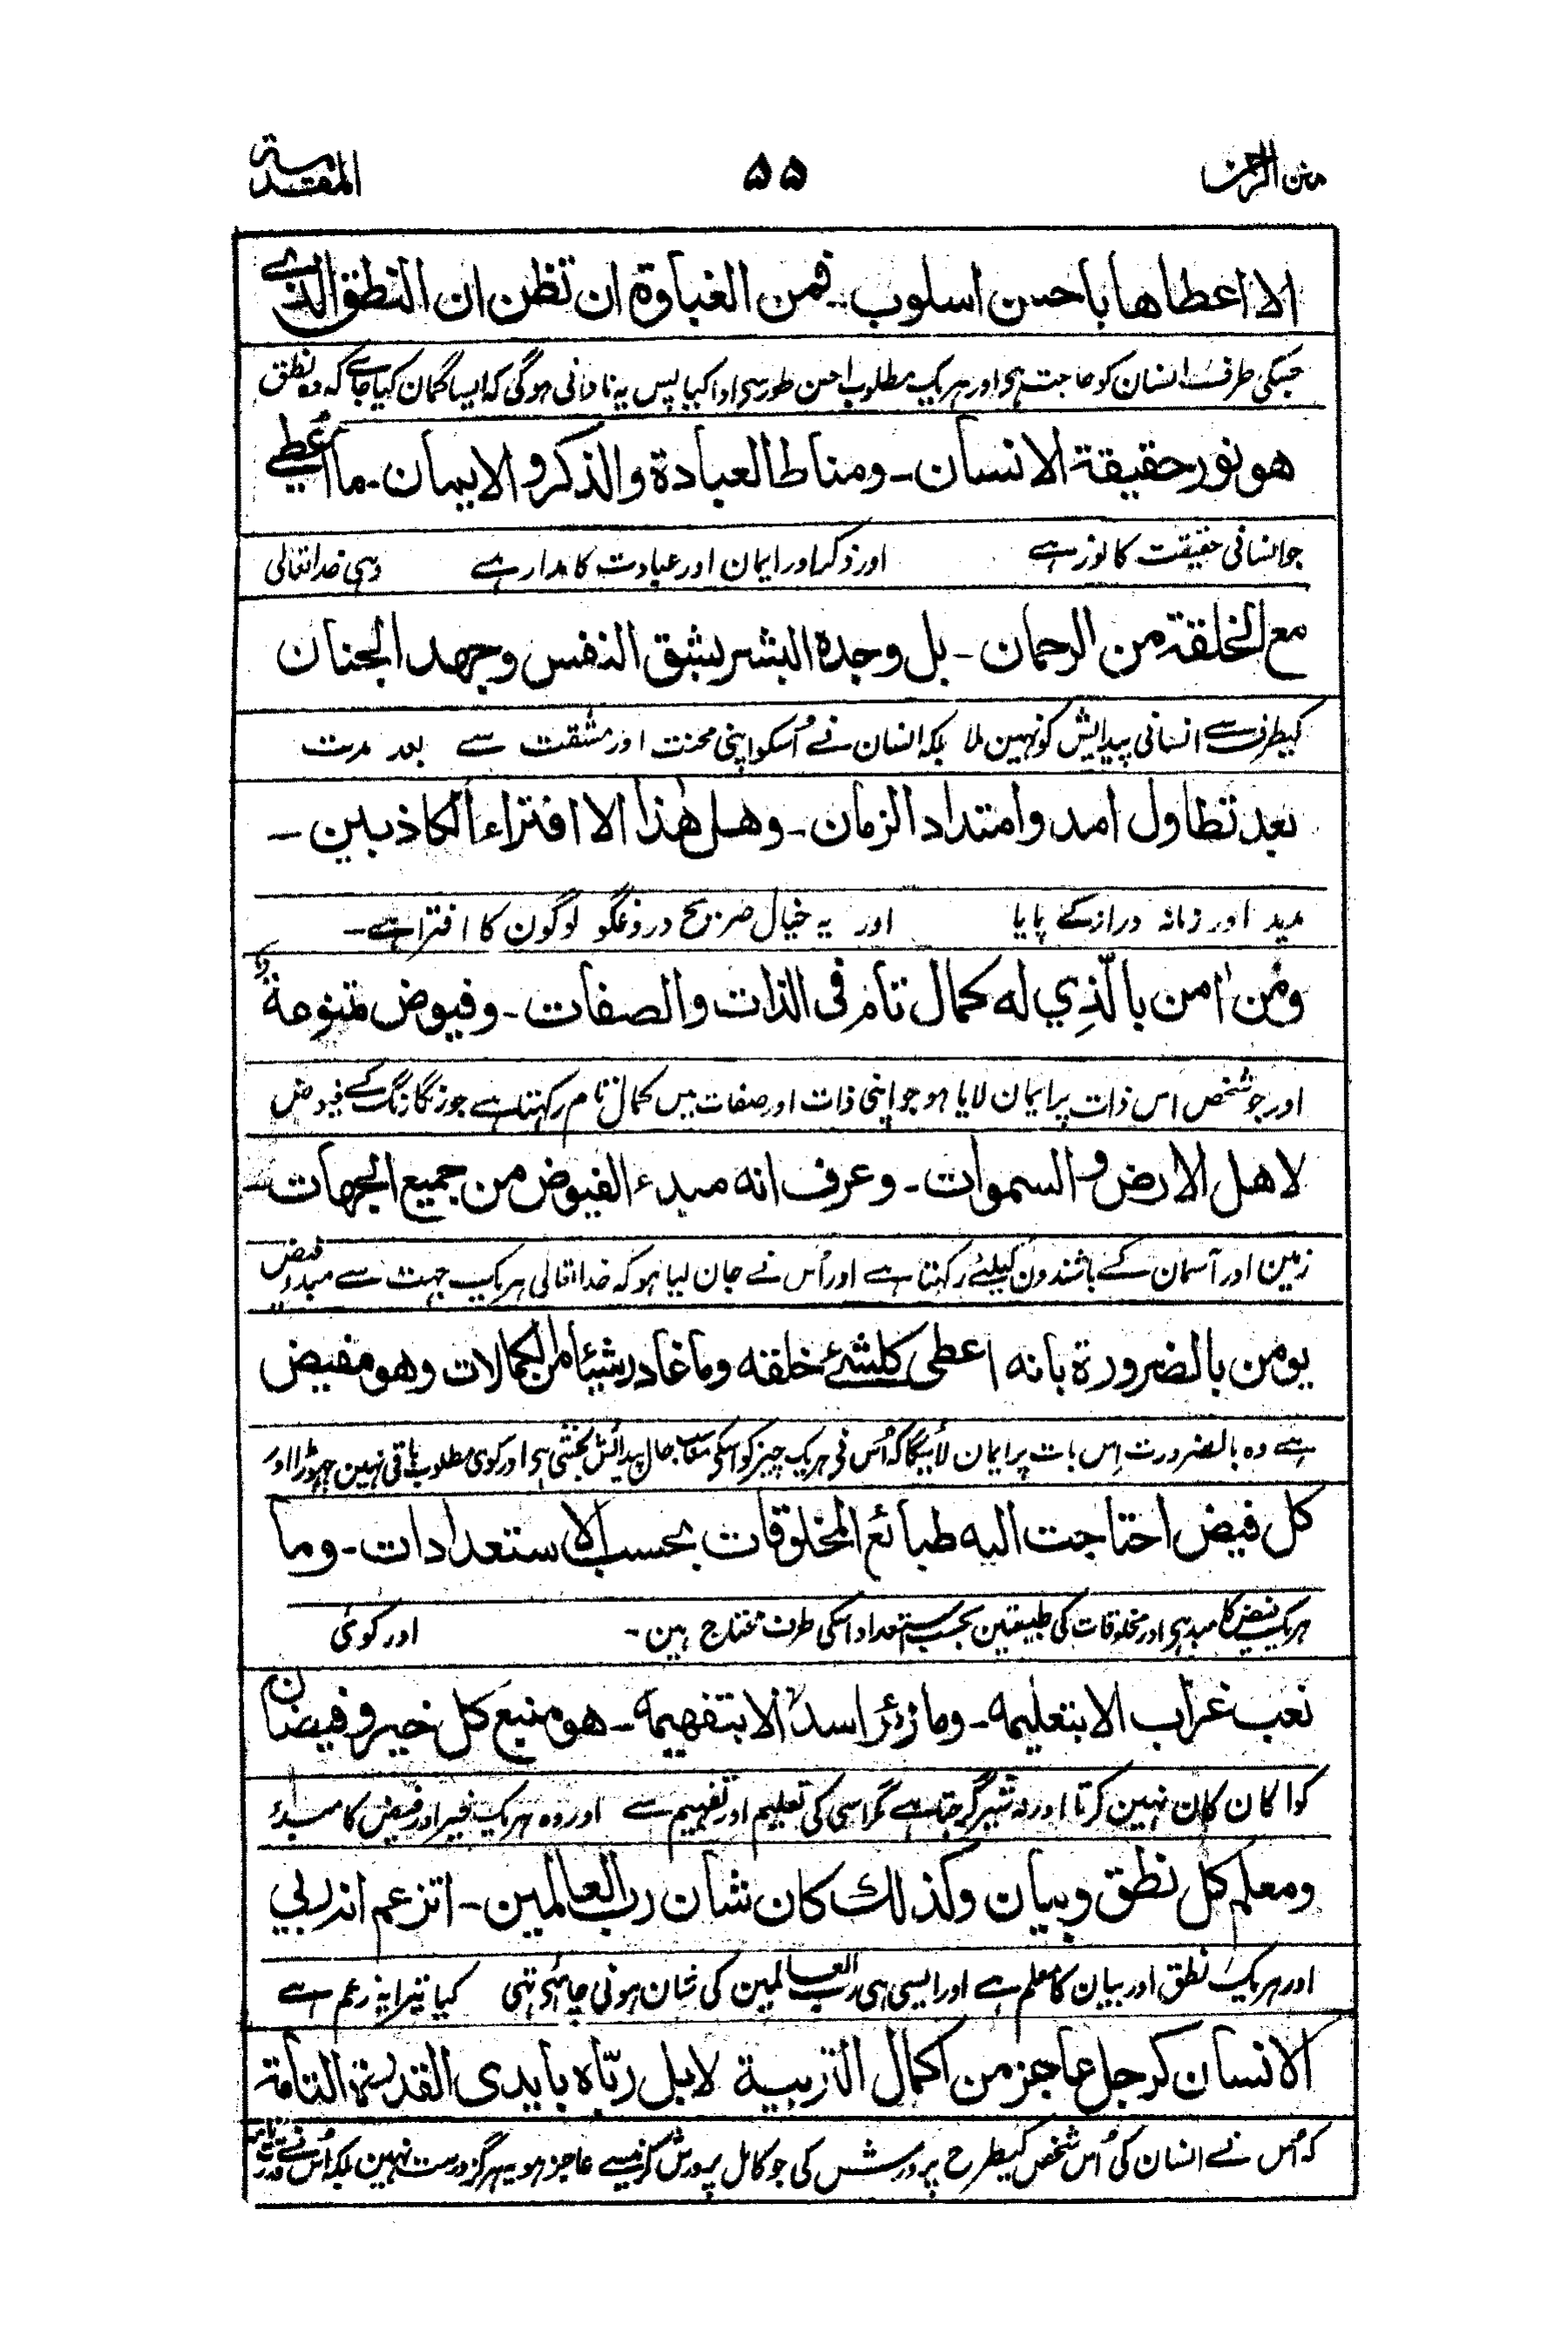 منن الرحمن ۵۵ المقدمة
الا اعطاها باحسن اسلوب۔ فمن الغباوة ان تظن ان النطق الذي
جسکی طرف انسان کو حاجت ہی اور ہریک مطلوب احسن طور سی ادا کیا پس یہ نادانی ہوگی کہ ایسا گمان کیا جاے کہ وہ نطق
هو نور حقيقة الانسان۔ ومناط العبادة والذكر والايمان۔ ما اُعطي
جو انسانی حقیقت کا نور ہے اور ذکر اور ایمان اور عبادت کا مدار ہے وہی خدا تعالی
مع الخلقة من الرحمان۔ بل وجده البشر بشق النفس وجهد الجنان
کیطرف سے انسانی پیدایش کو نہین ملا بلکہ انسان نے اُسکو اپنی محنت اور مشقت سے بعد مدت
بعد تطاول امد وامتداد الزمان۔ وهل هٰذا الا افتراء الكاذبين۔
مدید اور زمانہ دراز کے پایا اور یہ خیال صریح دروغگو لوگون کا افترا ہے۔
ومن اٰمن بالّذِي له كمال تام فى الذات والصفات۔ وفيوض متنوعة
اور جو شخص اس ذات پر ایمان لایا ہو جو اپنی ذات اور صفات میں کمال تام رکہتا ہے جو رنگا رنگ کے فیوض
لاهل الارض والسموات۔ وعرف انه مبدء الفيوض من جميع الجهات۔
زمین اور آسمان کے باشندون کیلئے رکہتا ہے اور اُس نے جان لیا ہو کہ خدا تعالی ہریک جہت سے مبدء فیض
يومن بالضرورة بانه اعطى كلشئ خلقه وما غادر شيئا من الكمالات وهو مفيض
ہے وہ بالضرورت اِس بات پر ایمان لائیگا کہ اُس نی ہریک چیز کو اسکی مناسب حال پیدائش بخشی ہی اور کوی مطلوب باقی نہین چہوڑا اور
كل فيض احتاجت اليه طبائع المخلوقات بحسب الاستعدادات۔ وما
ہریک فیض کا مبدء ہی اور مخلوقات کی طبیعتین بحسب استعداد اسکی طرف محتاج ہین۔ اور کوئی
نعب غراب الا بتعليمه۔ وما زئر اسد الا بتفهيمه۔ هو منبع كل خير وفيضان
کوا کان کان نہین کرتا اور نہ شیر گرجتا ہے مگر اسی کی تعلیم اور تفہیم سے اور وہ ہریک خیر اور فیض کا مبدء
ومعلم كل نطق وبيان وكذلك كان شان رب العالمين۔ اتزعم انه ربي
اور ہریک نطق اور بیان کا معلم ہے اور ایسی ہی رب العالمین کی شان ہونی چاہئی تہی کیا تیرا یہ زعم ہے
الانسان كرجل عاجز من اكمال التربية لا بل ربّاه بايدى القدرة التامة
کہ اُس نے انسان کی اُس شخص کیطرح پرورش کی جو کامل پرورش کرنیسے عاجز ہو یہ ہرگز درست نہین بلکہ اُس نے قدرت تامہ